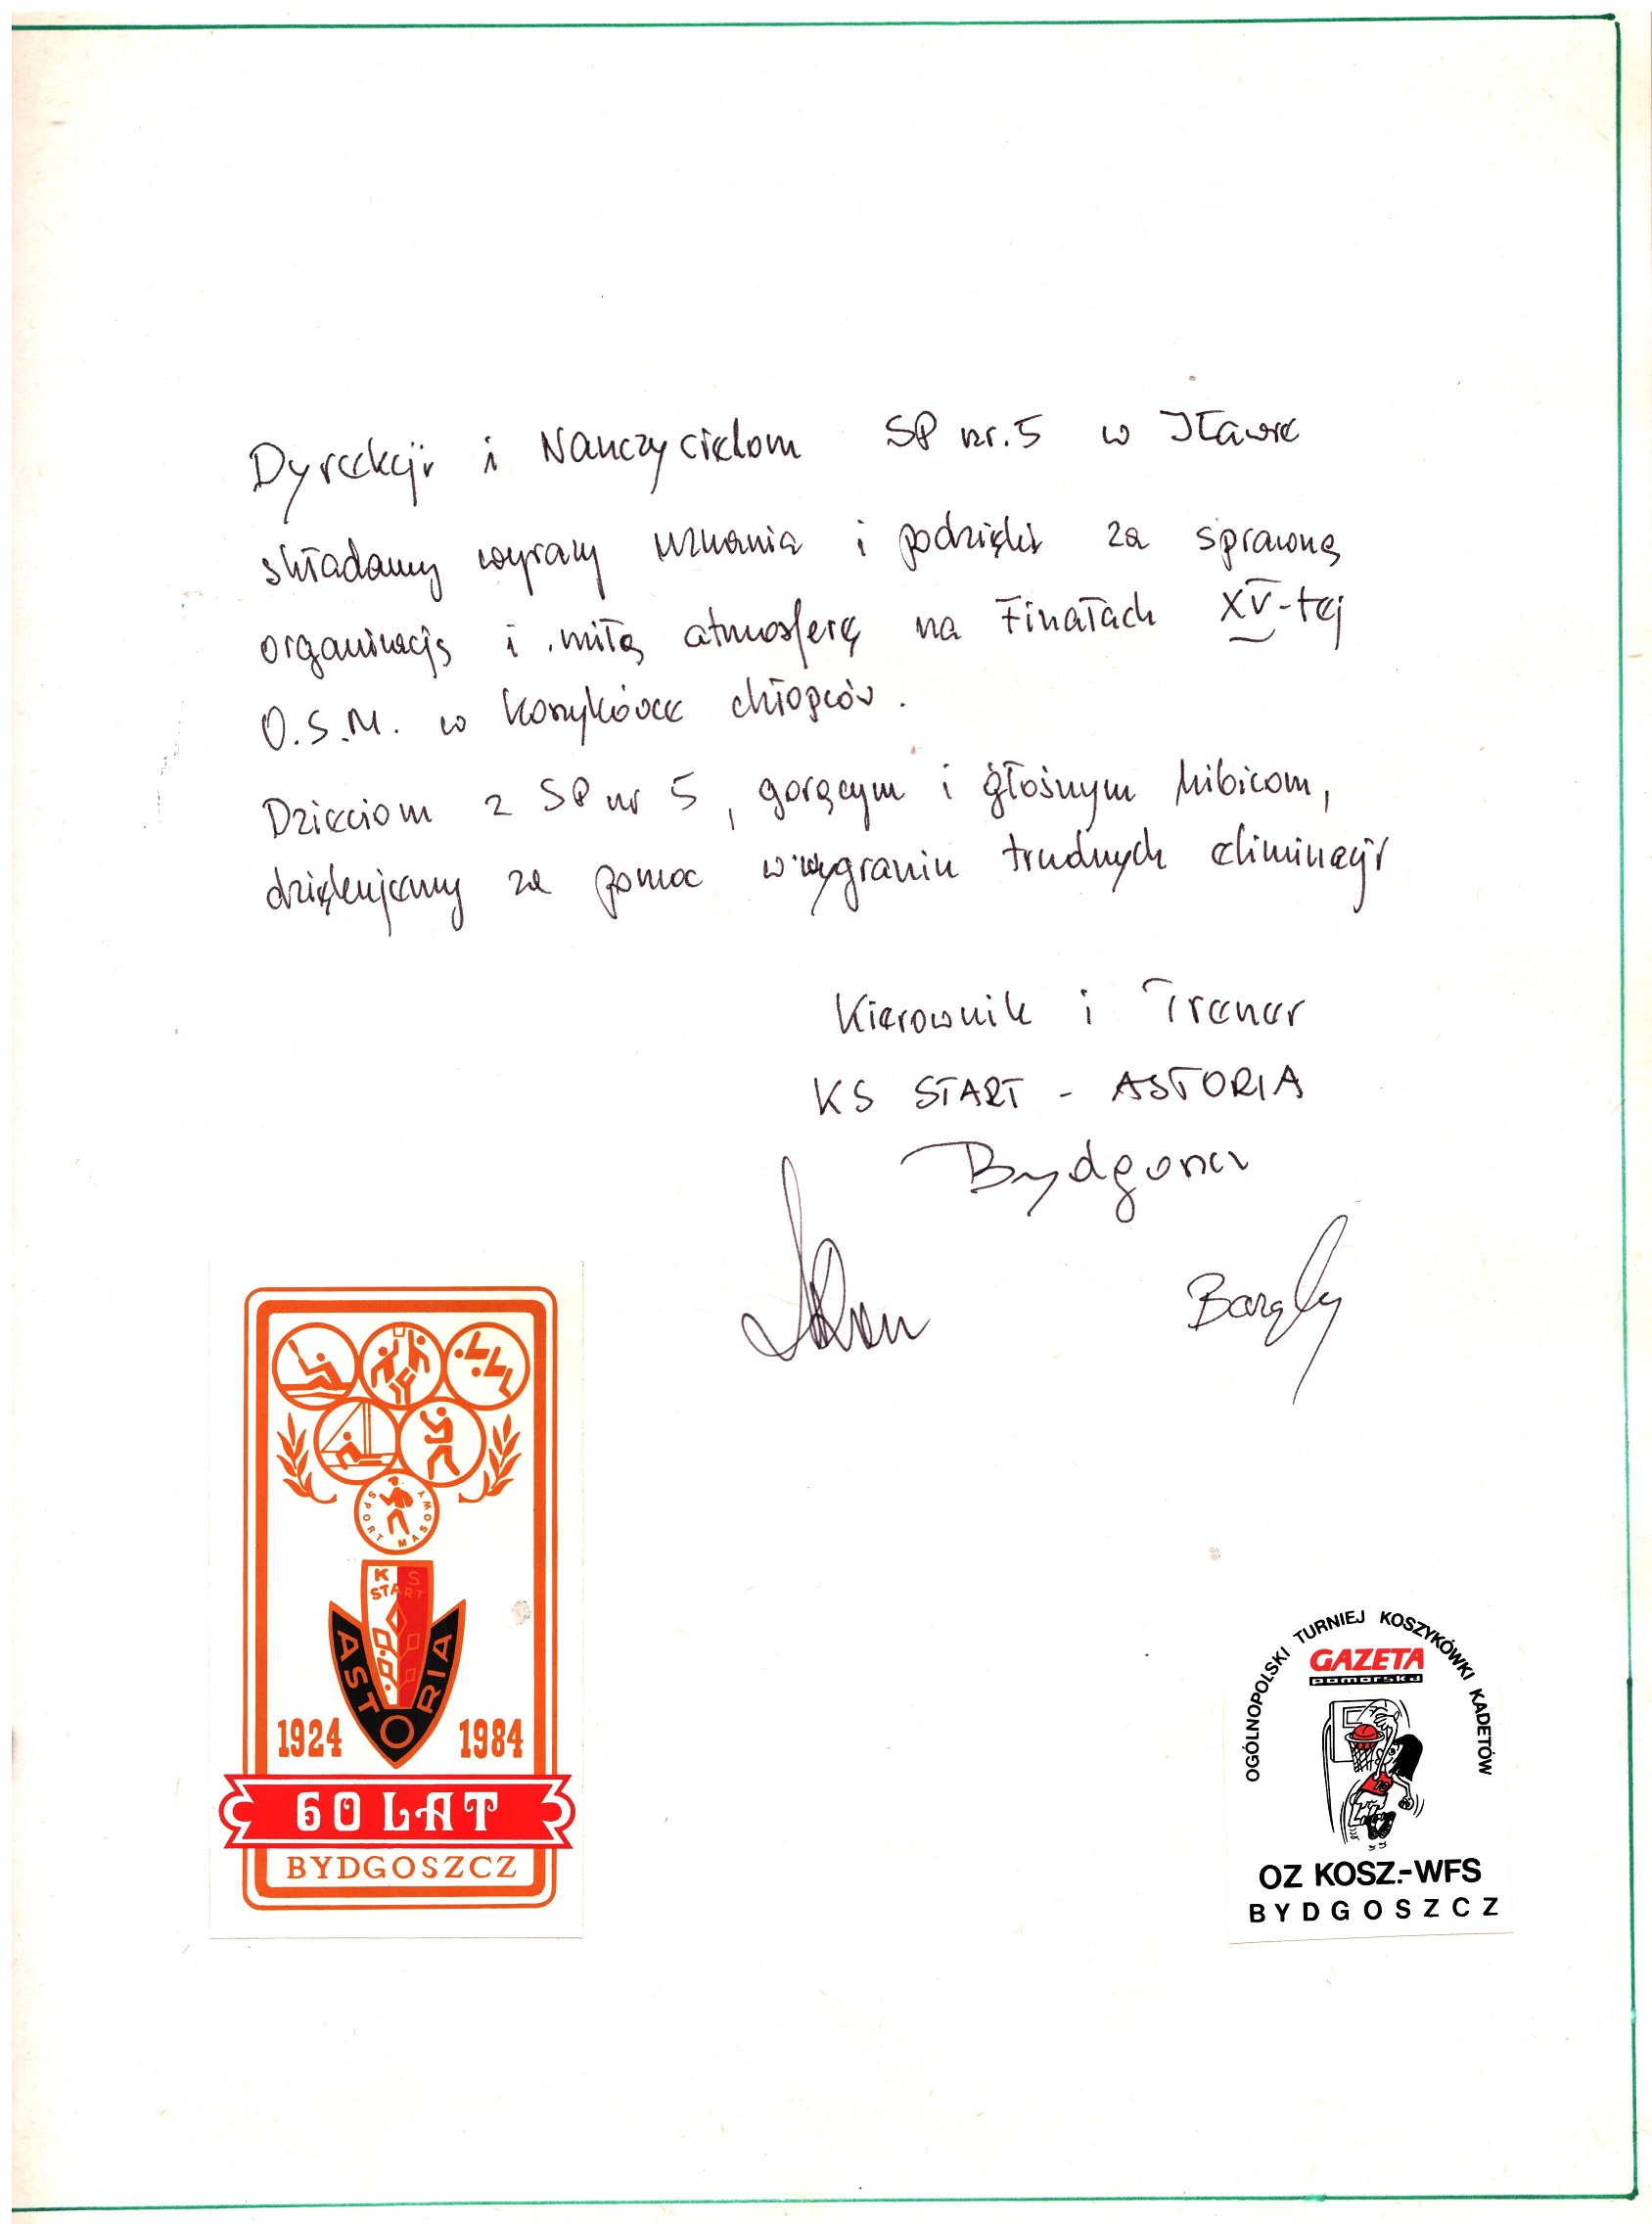 Dyrekcji i Nauczycielom SP nr. 5 w Iławie
składamy wyrazy uznania i podzięki za sprawną
organizację i miłą atmosferę na Finałach XV-tej
O.S.M. w koszykówce chłopców.
Dzieciom z SP nr 5, gorącym i głośnym kibicom,
dziękujemy za pomoc w wygraniu trudnych eliminacji
Kierownik i Trener
KS START - ASTORIA
Bydgoszcz
SPORT MASOWY
KS
START
ASTORIA
1924 1984
60 LAT
BYDGOSZCZ
OGÓLNOPOLSKI TURNIEJ KOSZYKÓWKI KADETÓW
GAZETA
pomorska
OZ KOSZ.-WFS
BYDGOSZCZ